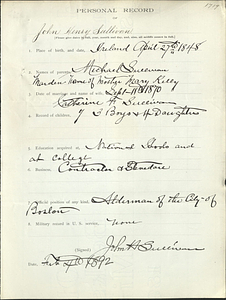 PERSONAL RECORD
OF
John Henry Sullivan
1. Place of birth, and date, Ireland April 27th 1848
2. Names of parents, Michael Sullivan
Maiden Name of Mother Mary Kelly
3. Date of marriage and name of wife, Sept 11th 1870
Katherine F Sullivan
4. Record of children, 7 3 Boys & 4 Daughters
5. Education acquired at, National Schools and
at College
6. Business, Contractor & Stevedore
7. Official position of any kind, Alderman of the City of
Boston
8. Military record in U. S. service, none
(Signed) John H Sullivan
Date, Feb 4th 1892